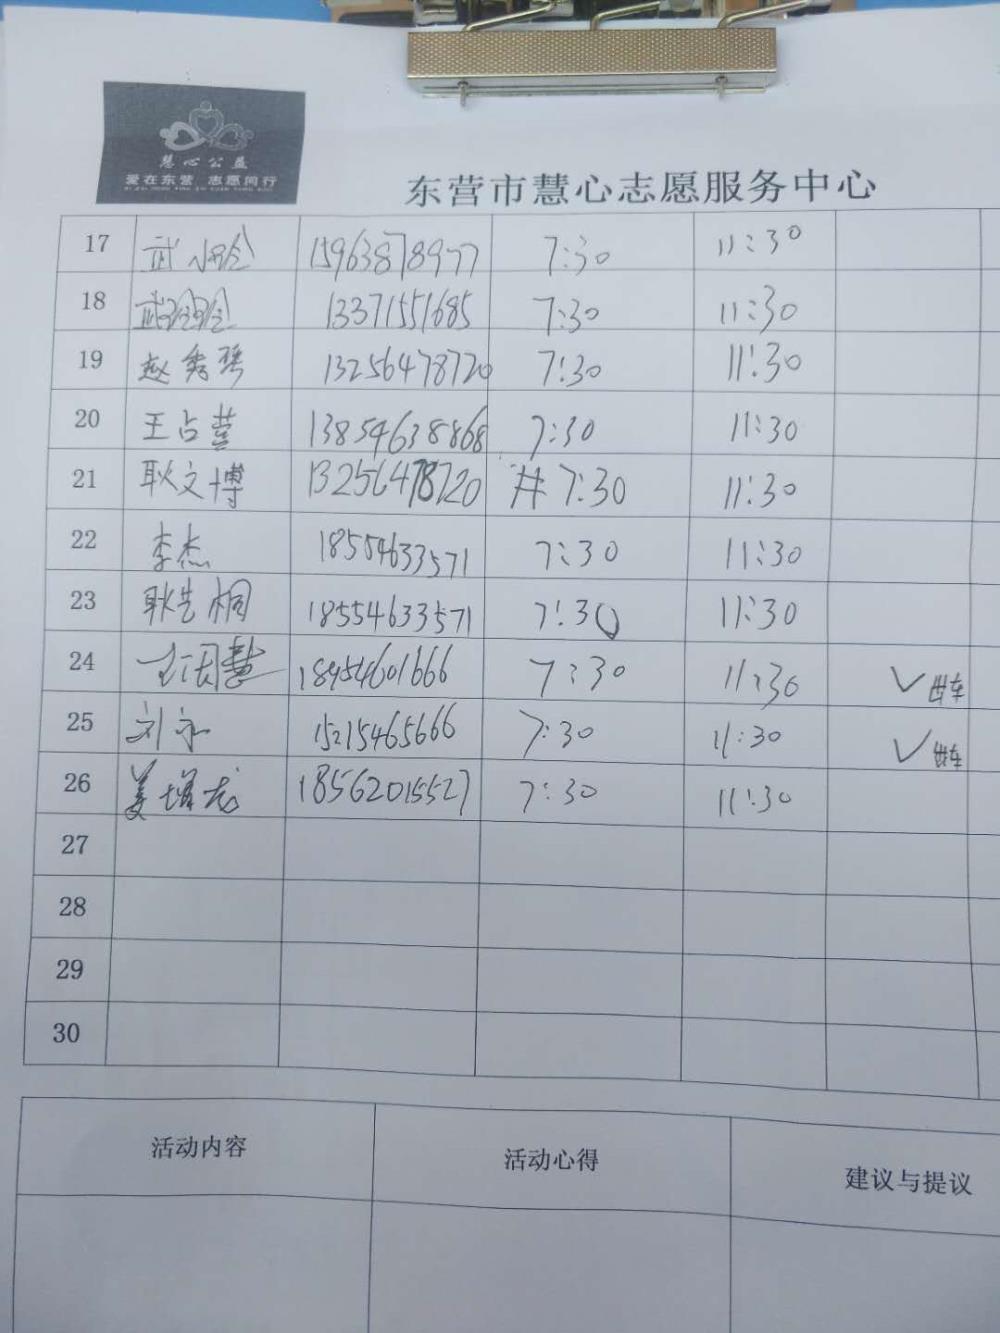 慧心公益
爱在东营 志愿同行
东营市慧心志愿服务中心
17 武 15963878977 7:30 11:30
18 武 13371551685 7:30 11:30
19 赵秀琴 13256478720 7:30 11:30
20 王占营 13854638868 7:30 11:30
21 耿文博 13256478720 7:30 11:30
22 李杰 18554633571 7:30 11:30
23 耿 桐 18554633571 7:30 11:30
24 慧 18954601666 7:30 11:30 √ 车
25 刘永 15215465666 7:30 11:30 √ 车
26 姜增龙 18562015527 7:30 11:30
27
28
29
30
活动内容 活动心得 建议与提议